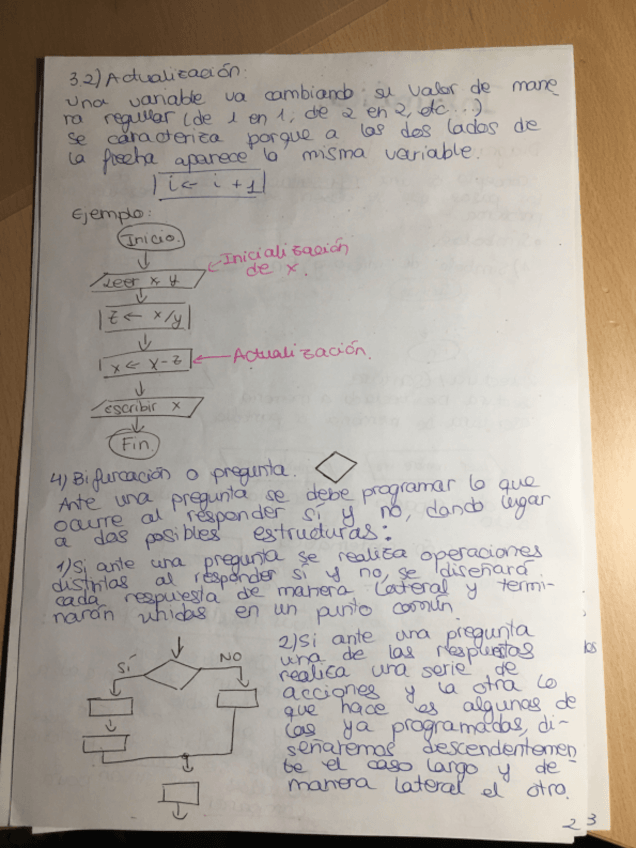 3.2) Actualización:
Una variable va cambiando su valor de mane
ra regular (de 1 en 1, de 2 en 2, etc...)
Se caracteriza porque a los dos lados de
la flecha aparece la misma variable.
i ← i + 1
Ejemplo:
Inicio.
Leer x y
Inicialización
de x.
z ← x/y
x ← x-z
Actualización.
escribir x
Fin.
4) Bifurcación o pregunta.
Ante una pregunta se debe programar lo que
ocurre al responder sí y no, dando lugar
a dos posibles estructuras:
1) Si ante una pregunta se realiza operaciones
distintas al responder si y no, se diseñará
cada respuesta de manera lateral y termi-
narán unidas en un punto común
SÍ
NO
2) Si ante una pregunta
una de las respuestas
realiza una serie de
acciones y la otra lo
que hace es algunas de
las ya programadas, di-
señaremos descendentemen
te el caso largo y de
manera lateral el otro.
los
2
3